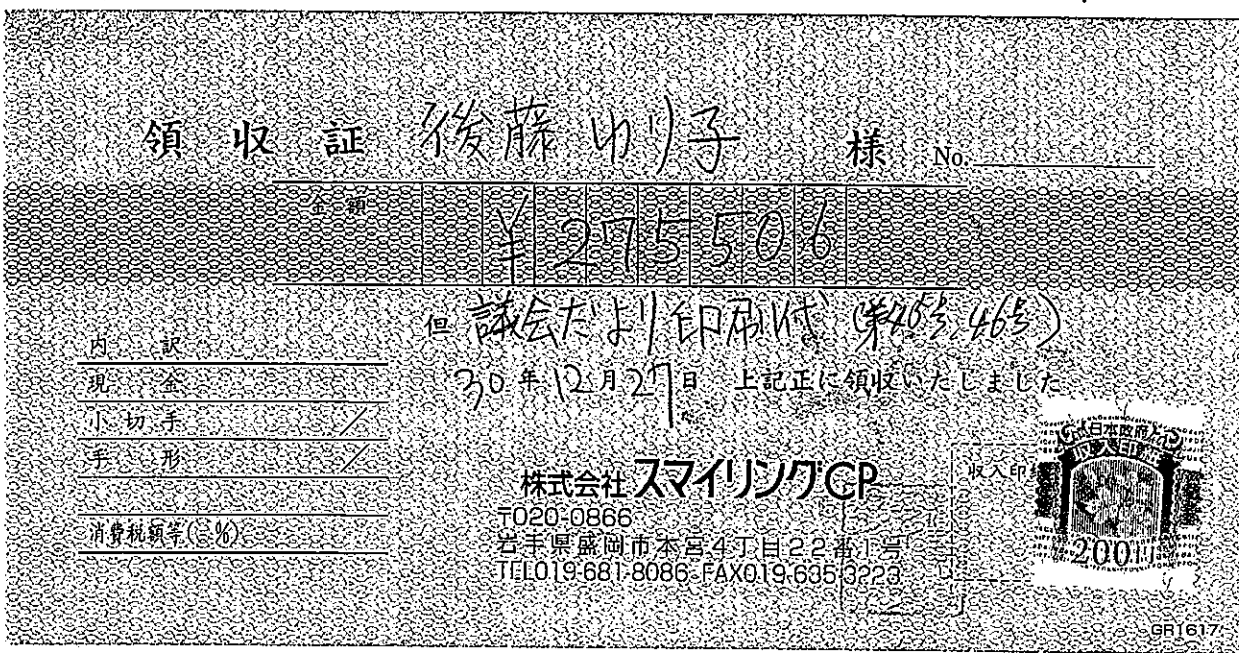 領収証 後藤ゆり子 様 No.
金額 ¥275506
但 議会だより印刷代 (第45号、46号)
30年12月27日 上記正に領収いたしました
内訳
現金
小切手 /
手形 /
消費税額等( %)
株式会社スマイリングCP
〒020-0866
岩手県盛岡市本宮4丁目22番1号
TEL019-681-8086 FAX019-635-3223
収入印
日本政府
収入印紙
200円
GR1617